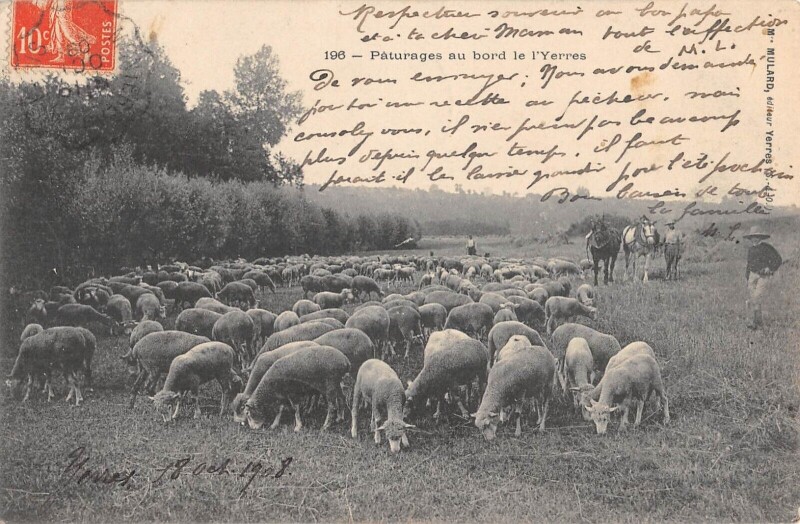 10c
POSTES
Respectueux souvenir au bon papa
et à ta chère Maman tout l'affection
de M. L.
196 — Pâturages au bord le l'Yerres
De vous envoyer, Nous avons demandé
pour toi une recette au pêcheur, mais
consolez vous, il n'en prend pas beaucoup
plus depuis quelque temps, il faut
paraît il les laisser grandir pour l'été prochain
Bons baisers de toute
la famille
M. L.
Mon MULARD, éditeur Yerres (S.-&-O.)
Yerres 18 oct. 1908.